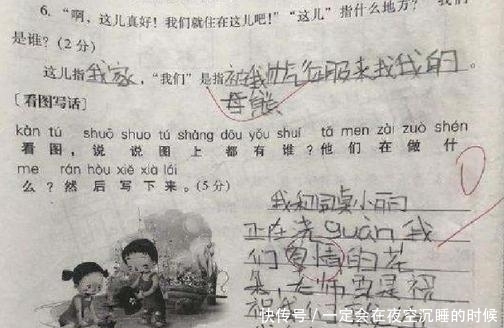 6. “啊，这儿真好！我们就住在这儿吧！”“这儿”指什么地方？“我们”
是谁？(2分)
这儿指我家，“我们”是指被我帅气征服来找我的
母熊。
[看图写话]
kàn tú shuō shuo tú shàng dōu yǒu shuí tā men zài zuò shén
看图，说说图上都有谁？他们在做什
me rán hòu xiě xià lái
么？然后写下来。(5分)
我和同桌小丽
正在浇guàn我
们爱情的花
朵，老师真是祝
祝我们
快传号／一定会在夜空沉睡的时候